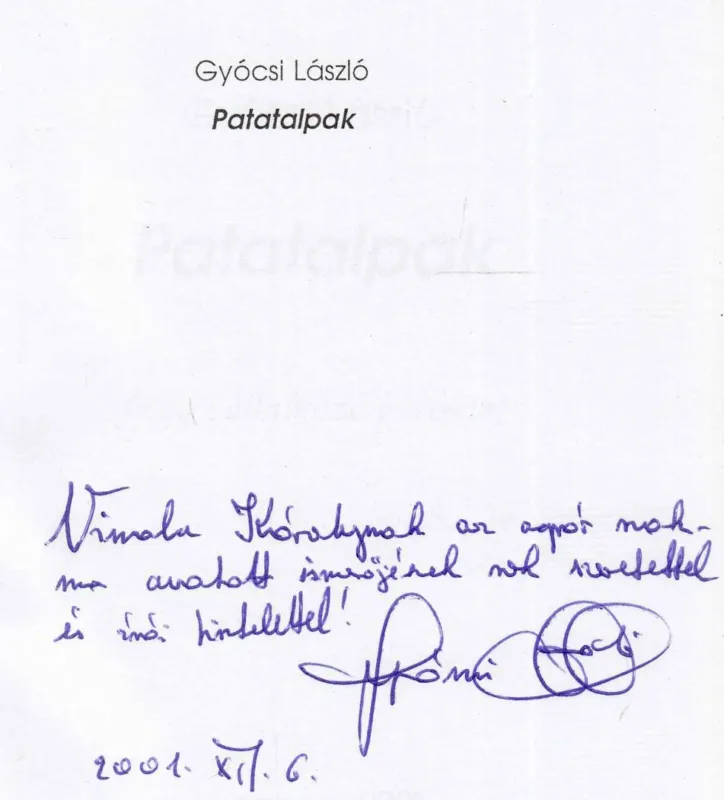 Gyócsi László
Patatalpak
Patatalpak
Vimola Károlynak az apró szak-
ma avatott ismerőjének sok szeretettel
és írói tisztelettel!
2001. XII. 6.